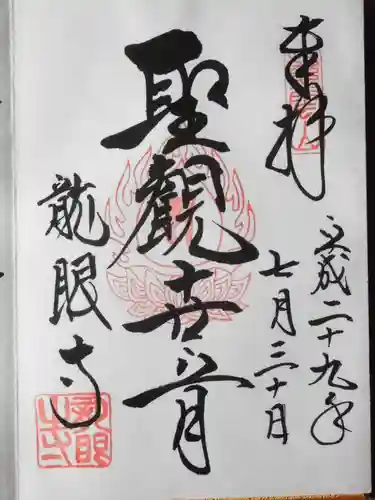 奉拝
平成二十九年
七月三十日
聖観世音
龍眼寺